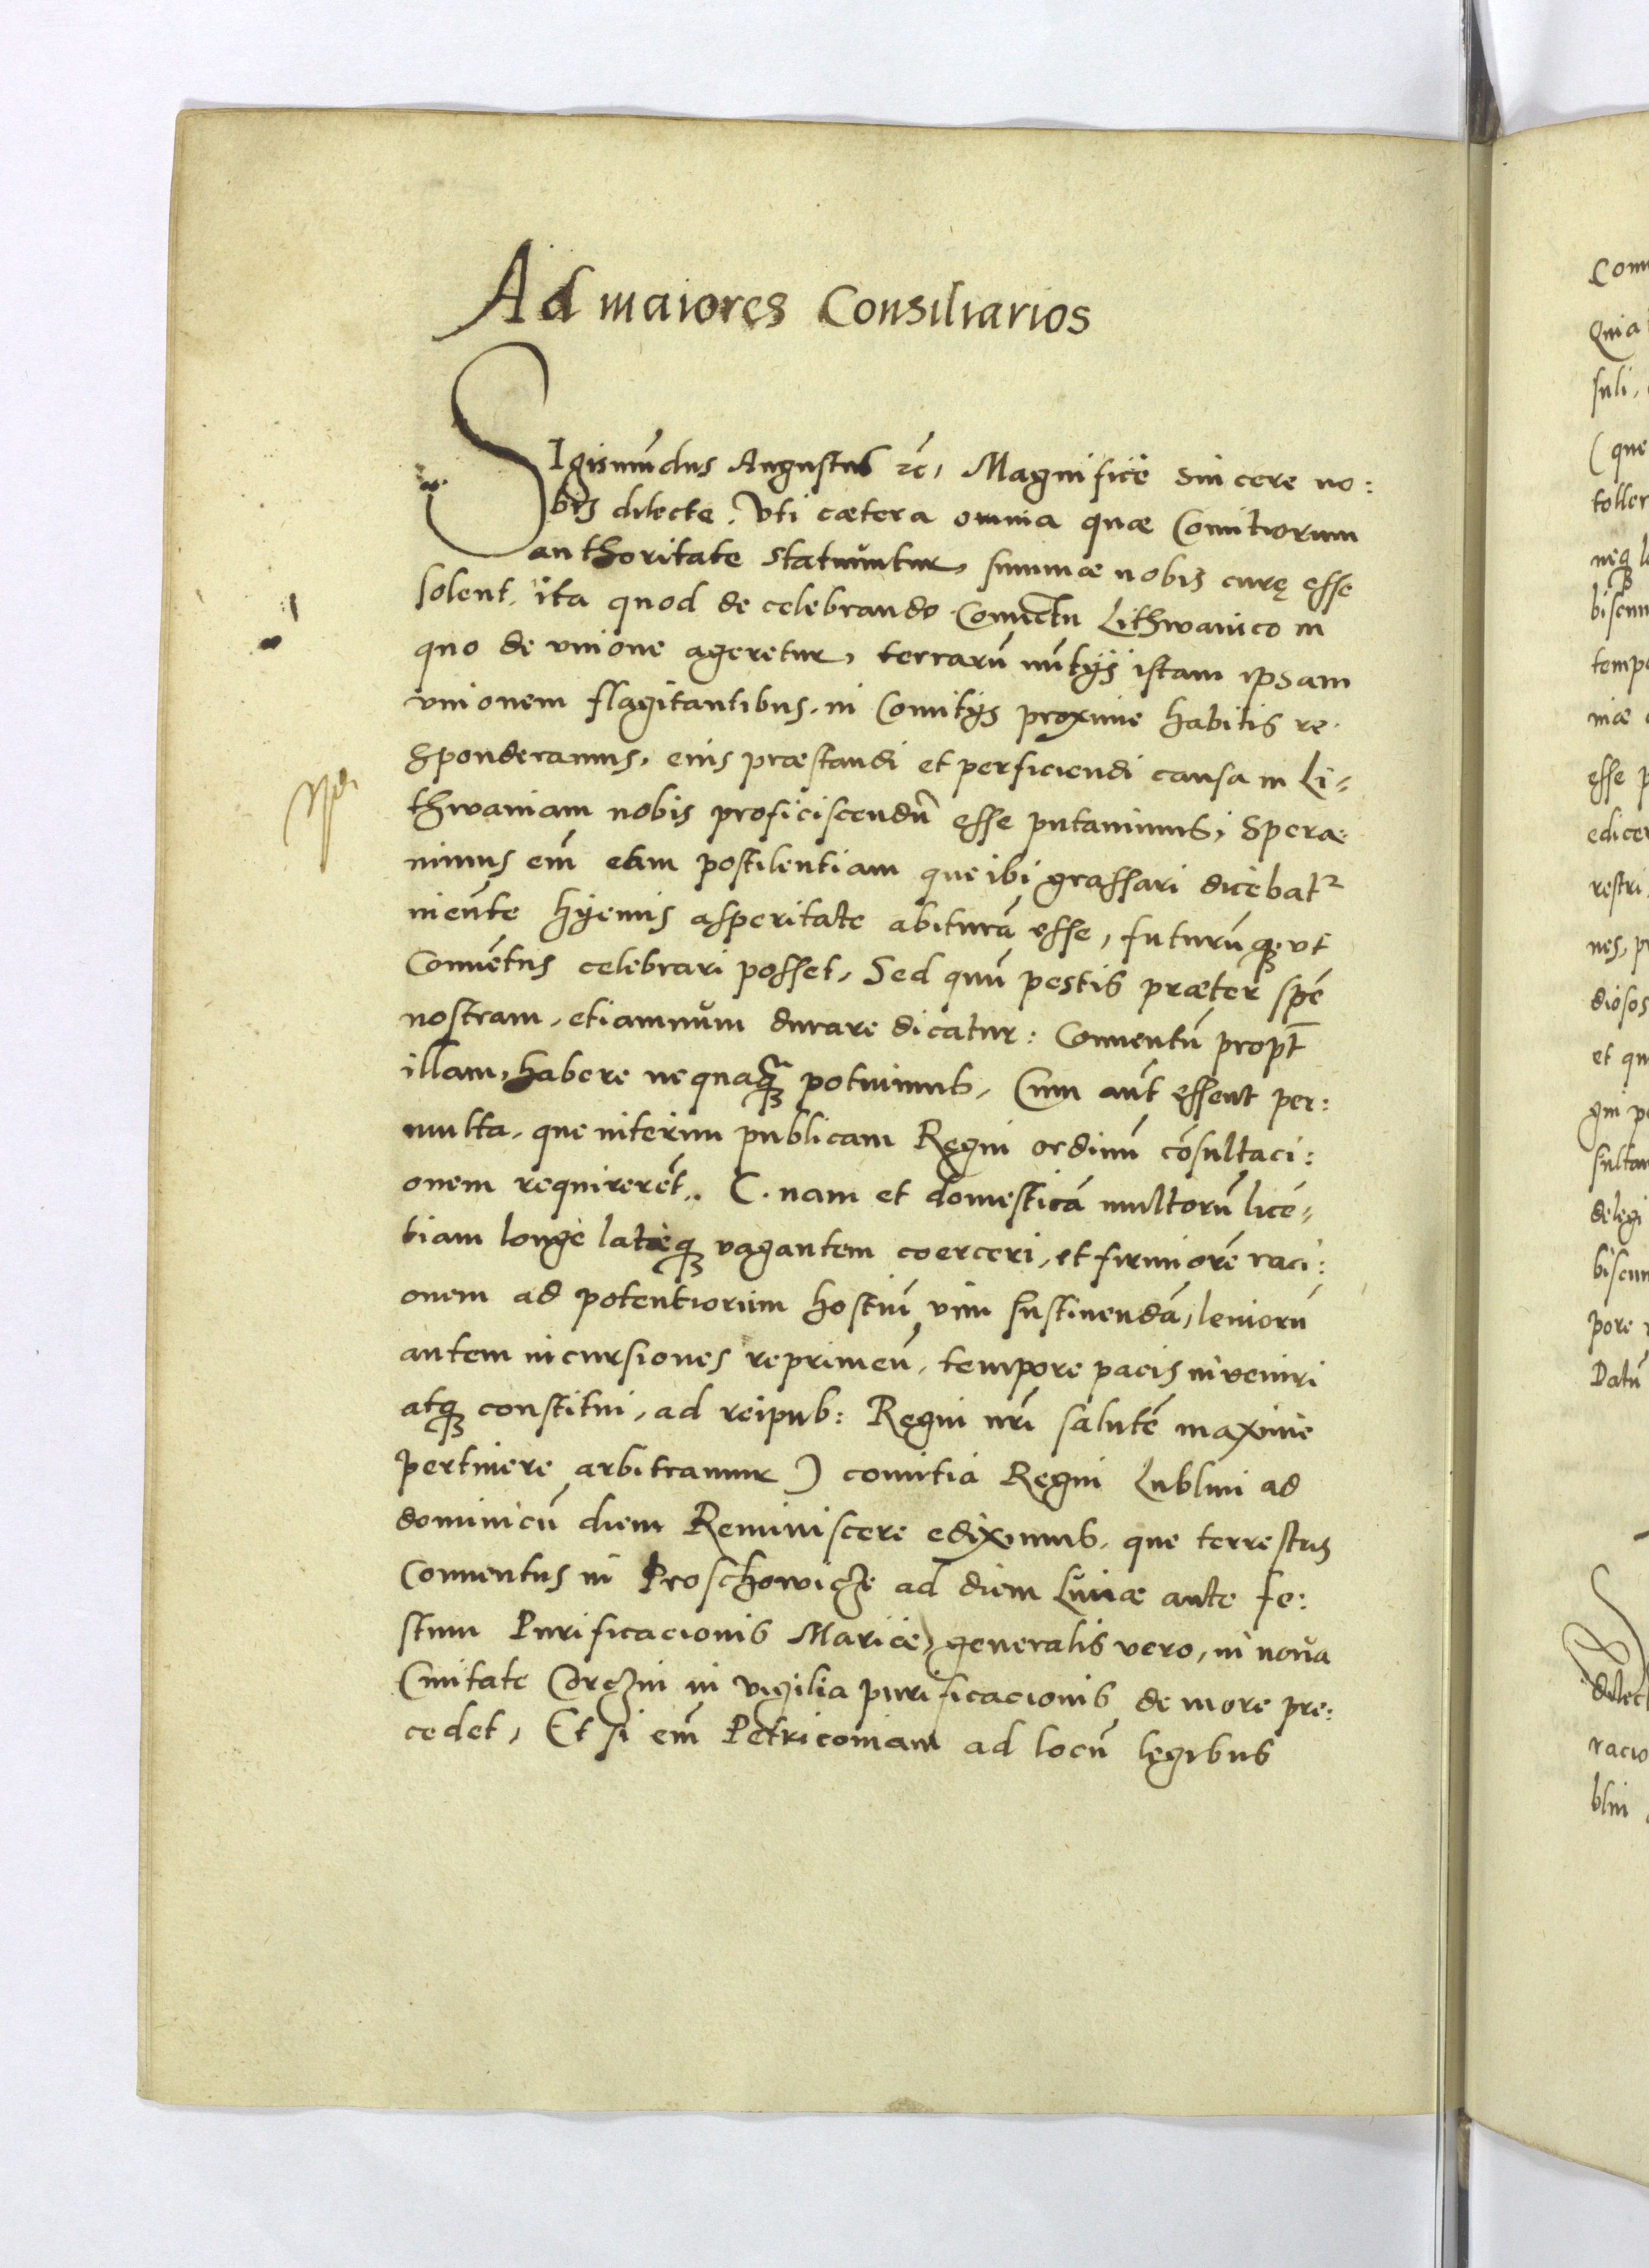 Ad maiores Consiliarios
SIgismūdus Augustus rc̄, Magnifice sincere no:
bis dilecte. Vti cætera omnia quæ Comitiorum
authoritate statuuntur, summæ nobis curę esse
solent, ita quod de celebrando Conuētu Lithwanico in
quo de vnione ageretur, terrarū nūtÿs istam ipsam
vnionem flagitantibus, in Comitÿs proxime habitis re
sponderamus, eius præstandi et perficiendi causa in Li=
thwaniam nobis proficiscendū esse putauimus, Spera
uimus em̄ eam pestilentiam que ibi grassari dicebat2
ineunte hyemis asperitate abiturā esse, futurūq; vt
Conuētus celebrari posset, Sed quū pestis præter spē
nostram, etiamnum durare dicatur: Conuentū propt̄
illam, habere nequaq̄; potuimus, Cum aūt essent per:
multa, que interim publicam Regni ordinū cōsultaci:
onem requirerēt. C. nam et domesticā multorū licē=
tiam longe lateq; vagantem coerceri, et firmiorē raci:
onem ad potentiorum hostiū vim sustinendā, leuiorū
autem incursiones reprimen̄, tempore pacis inveniri
atq; constitui, ad reipub: Regni nr̄i salutē maxime
pertinere arbitramur ) comitia Regni Lublini ad
dominicū diem Reminiscere edixumus, que terrestris
Conuentus in Proschowicze ad diem Lunæ ante fe:
stum Purificacionis Mariæ, generalis vero, in noua
Ciuitate Corczin in vigilia purificacionis de more pre:
cedet, Et si em̄ Petricouiam ad locū legibus
Com
Quia
suli,
(que
toller
neq;
biscum
tempo
niæ
esse p
edicer
restri
nes, pr
diosos
et qu
gni
sultan
delegi
biscum
pore
Datū
dilect
racio
blini